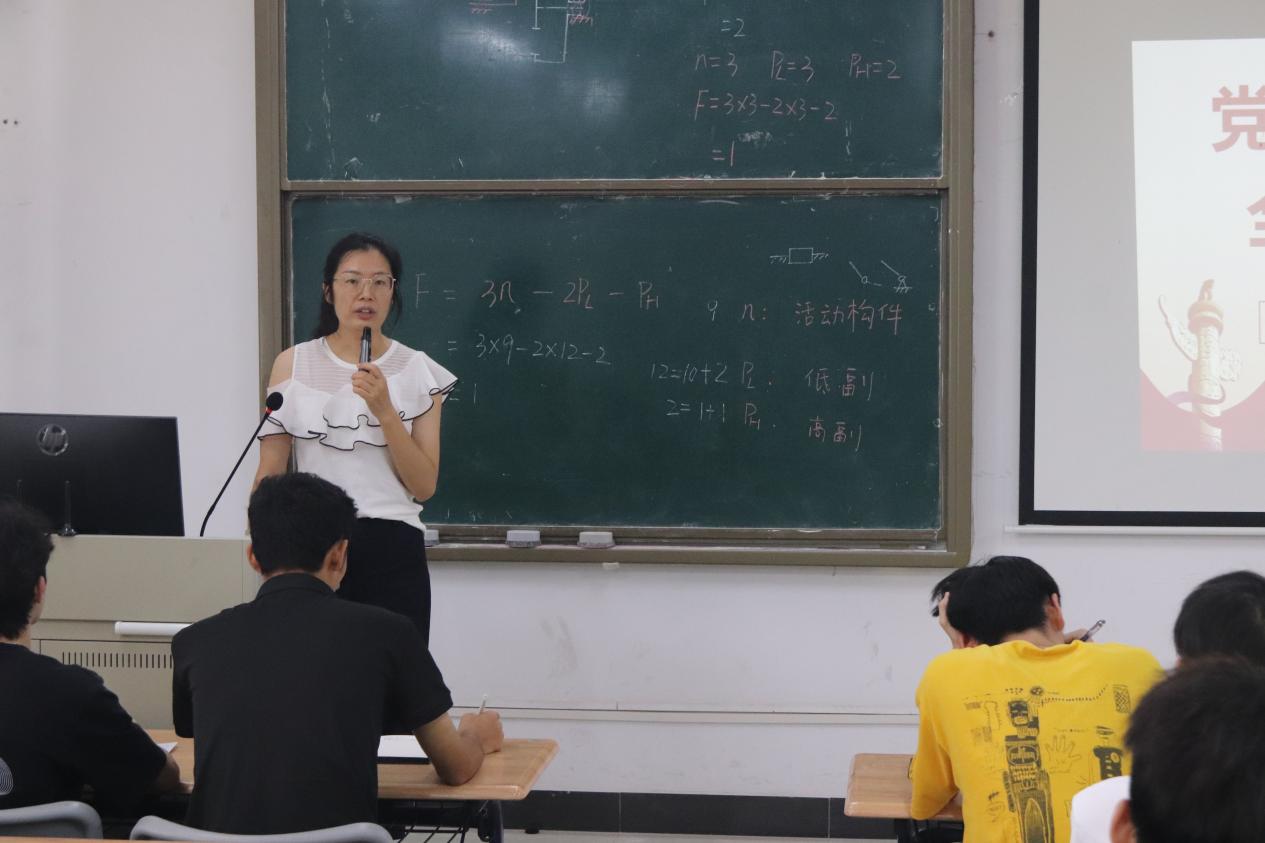 =2
n=3 PL=3 PH=2
F=3×3-2×3-2
=1
F = 3n - 2PL - PH
= 3×9-2×12-2
= 1
9 n: 活动构件
12=10+2 PL: 低副
2=1+1 PH. 高副
党
hp